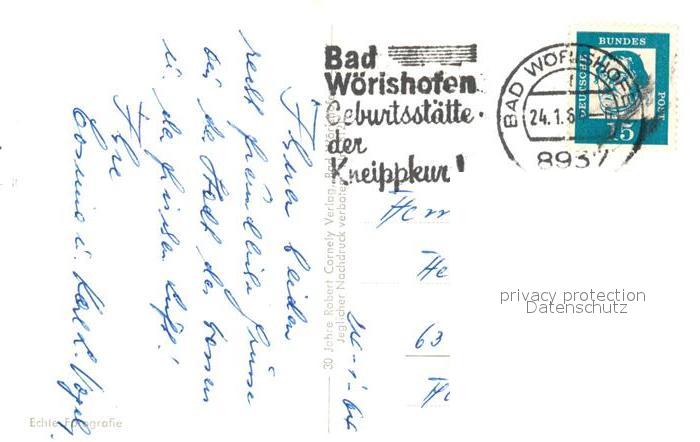 Bad
Wörishofen
Geburtsstätte
der
Kneippkur!
BAD WÖRISHOFEN
24.1.6
8939
DEUTSCHE
BUNDES
POST
15
Ihnen beiden
recht freundliche Grüsse
aus der Stadt des
u. da
Ihre
u. Karl L. Vogel,
24.1.64
Herrn
He
63
30 Jahre Robert Cornely Verlag, Bad Wörishofen
Jeglicher Nachdruck verboten
Echte Fotografie
privacy protection
Datenschutz